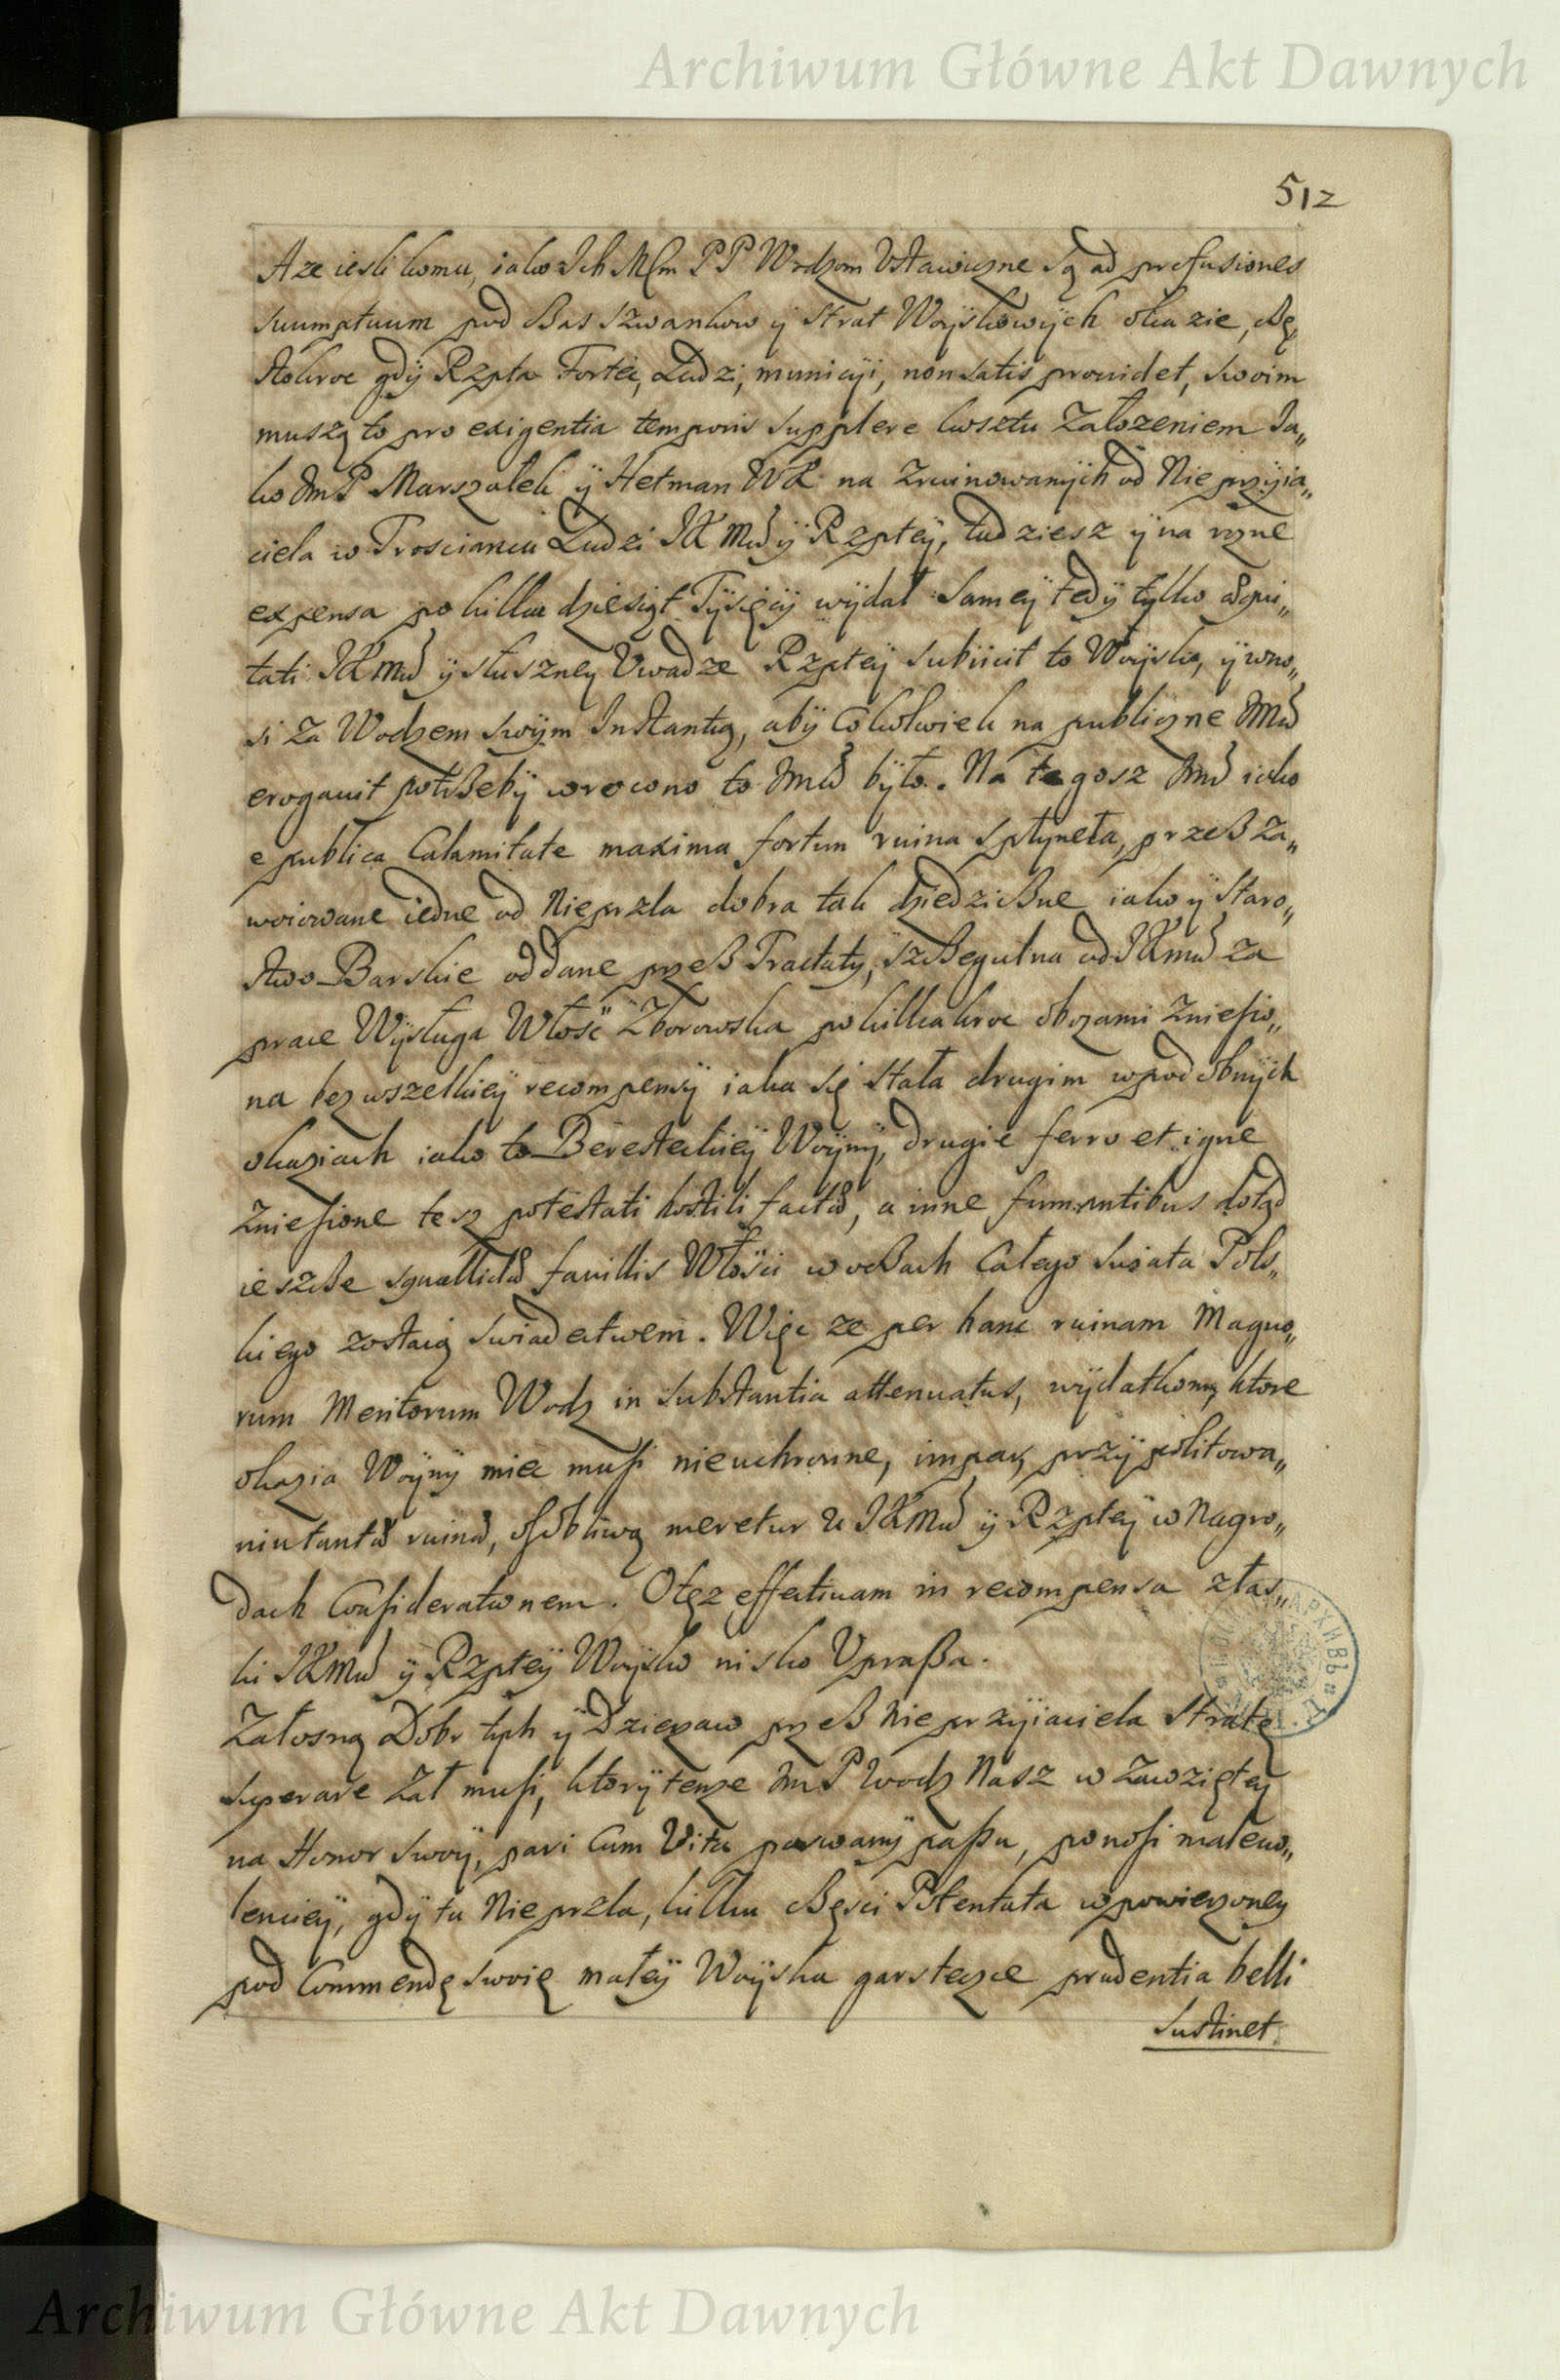 Archiwum Główne Akt Dawnych
512
A ze iesli komu, iako Ich Mcm PP Wodzom Ustawiczne są ad profusiones
suumptuum pod czas szwankow ÿ strat Woÿskowÿch okazie, czę„
stokroc gdÿ Rzpta Fortec, Ludzi, municÿi, non satis prouidet, swoim
muszą to pro exigentia temporis supplere kosztu Załozeniem Ja„
ko JmP Marszałek ÿ Hetman WK na zruinowanÿch od Nieprzÿia„
ciela w Trosciancu Ludzi JKMci ÿ Rzpteÿ, tudziesz ÿ na rozne
expensa po kilka dziesiąt Tÿsięcÿ wÿdał Sameÿ tedÿ tylko
tati JKMci ÿ słuszneÿ Uwadze Rzpteÿ subiicit to Woÿsko, ÿ wno„
si za Wodzem swÿm Instantią, abÿ Cokolwiek na publiczne JMć
erogauit potrzebÿ wrocono to Jmci było. Na tegosz Jmć iako
e publica Calamitate maxima fortun ruina spłyneła, przesz Za„
woiowane iedne od Nieprzla dobra tak dziedziczne iako ÿ Staro„
stwo Barskie oddane przesz Tractaty, szczegulna od JKmci za
prace Wÿsługa Włość Zborowska po kilkakroc obozami zniesio„
na bez wszelkieÿ recompensÿ iaka się stała drugim w podobnÿch
okaziach iako to Beresteckieÿ Woÿnÿ, drugie ferro et igne
Zniesione tesz potestati hostili facta, a inne fumantibus dotąd
ieszcze fauillis Włości w oczach Całego Swiata Pols„
kiego zostaią swiadectwem. Więc ze per hanc ruinam Magno„
rum Meritorum Wodz in substantia attenuatus, wÿdatkom, ktore
okazia Woÿnÿ miec musi nieuchronne, impar, przÿ politowa„
niu tanta ruina, osobliwą meretur u JKMci ÿ Rzpteÿ w Nagro„
dach Consideratwnem. Otęz effectiuam in recompensa z łas„
ki JKMci ÿ Rzpteÿ Woÿsko nisko Uprasza.
Załosną Dobr tÿch ÿ Dzierzaw przesz Nieprzÿiaciela stratę
superare Zal musi, ktorÿ tenze JmP Wodz Nasz w zawzięteÿ
na Honor swoÿ, pari Cum Vita passu, ponosi malewo„
lencieÿ, gdÿ tu Nieprzla, kilku częsci Potentata w powierzoneÿ
pod Commendę swoię małeÿ Woÿska garstecze prudentia belli
sustinet.
Archiwum Główne Akt Dawnych